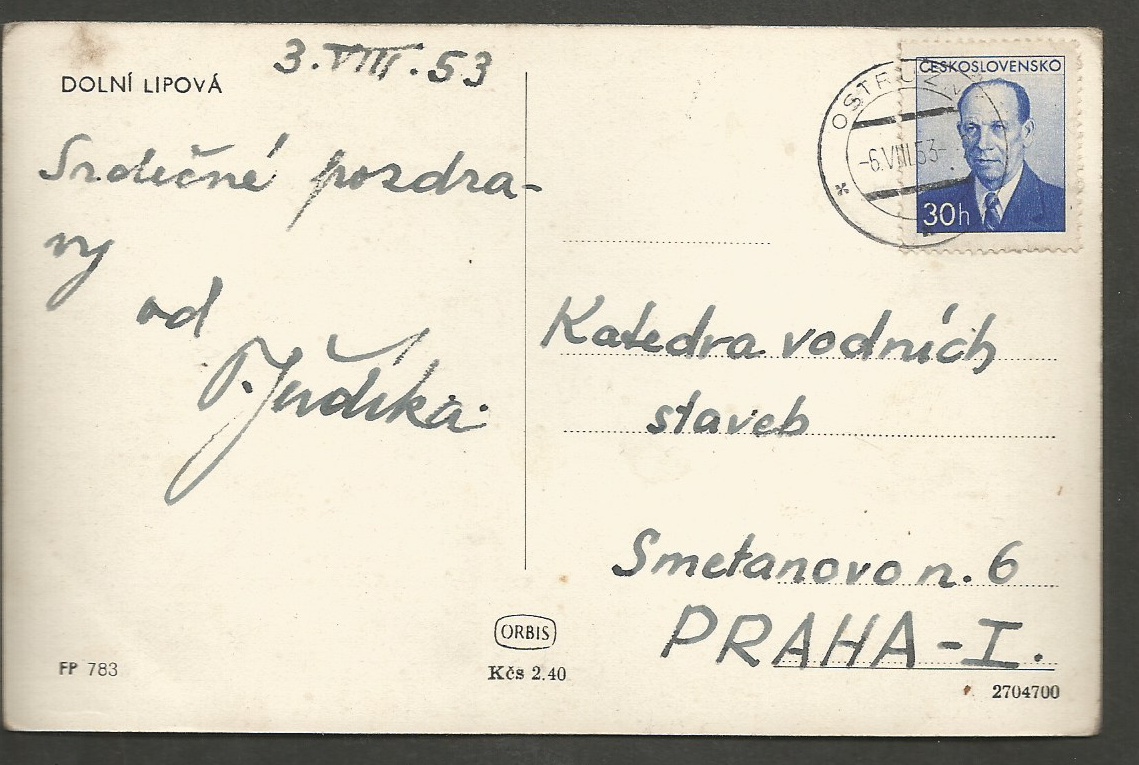 DOLNÍ LIPOVÁ
3.VIII.53
Srdečné pozdra-
vy
od
Judíka
FP 783
ORBIS
Kčs 2.40
ČESKOSLOVENSKO
30h
-6.VIII.53-
Katedra vodních
staveb
Smetanovo n. 6
PRAHA-I.
2704700